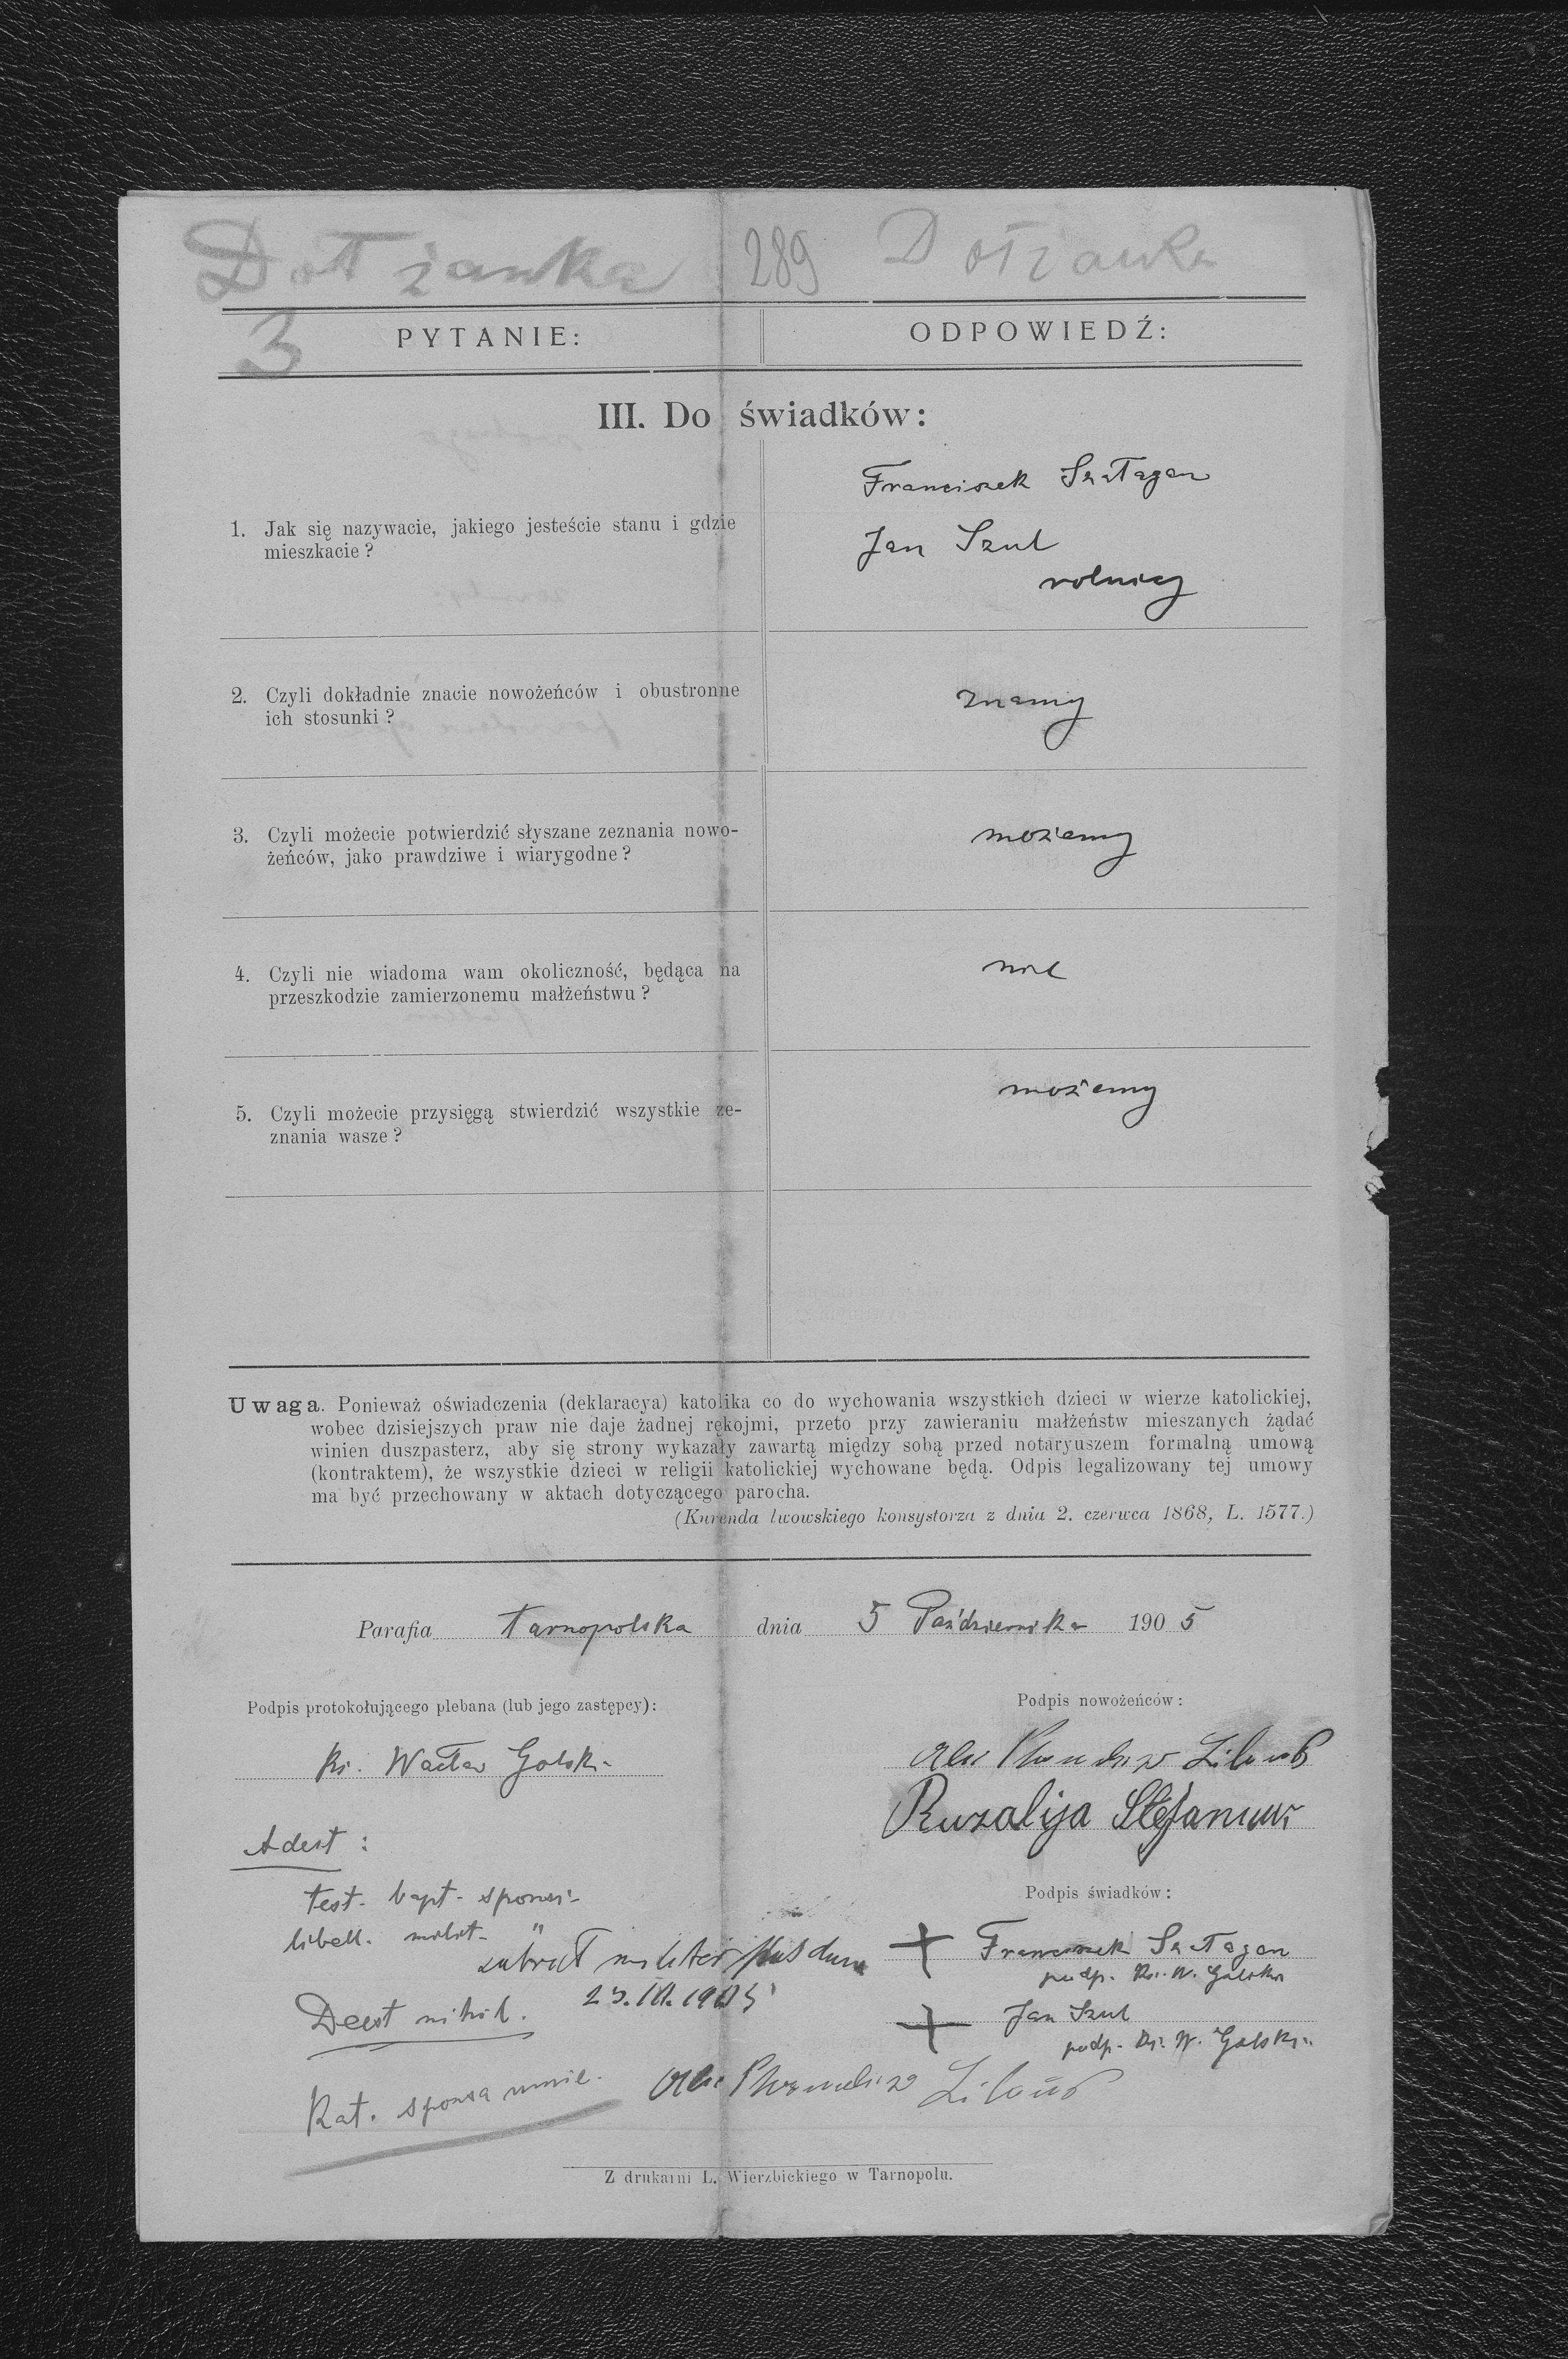 Dołżanka 289 Dołżanka
3
PYTANIE: ODPOWIEDŹ:
III. Do świadków:
Franciszek Szałagan
1. Jak się nazywacie, jakiego jesteście stanu i gdzie
mieszkacie?
Jan Szul
rolnicy
2. Czyli dokładnie znacie nowożeńców i obustronne
ich stosunki?
znamy
3. Czyli możecie potwierdzić słyszane zeznania nowo-
żeńców, jako prawdziwe i wiarygodne?
możemy
4. Czyli nie wiadoma wam okoliczność, będąca na
przeszkodzie zamierzonemu małżeństwu?
nie
5. Czyli możecie przysięgą stwierdzić wszystkie ze-
znania wasze?
możemy
Uwaga. Ponieważ oświadczenia (deklaracya) katolika co do wychowania wszystkich dzieci w wierze katolickiej,
wobec dzisiejszych praw nie daje żadnej rękojmi, przeto przy zawieraniu małżeństw mieszanych żądać
winien duszpasterz, aby się strony wykazały zawartą między sobą przed notaryuszem formalną umową
(kontraktem), że wszystkie dzieci w religii katolickiej wychowane będą. Odpis legalizowany tej umowy
ma być przechowany w aktach dotyczącego parocha.
(Kurenda lwowskiego konsystorza z dnia 2. czerwca 1868, L. 1577.)
Parafia tarnopolska dnia 5 Października 1905
Podpis protokołującego plebana (lub jego zastępcy):
Podpis nowożeńców:
Ks. Wacław Golski
Ruzalija
Adest:
test. bapt. sponsi
Podpis świadków:
libell. milit. "
+ Franciszek Szałagan
podp. Ks. W. Golski
Deest nihil.
+ Jan Szul
podp. Ks. W. Golski
Kat. sponsa umie.
Z drukarni L. Wierzbickiego w Tarnopolu.